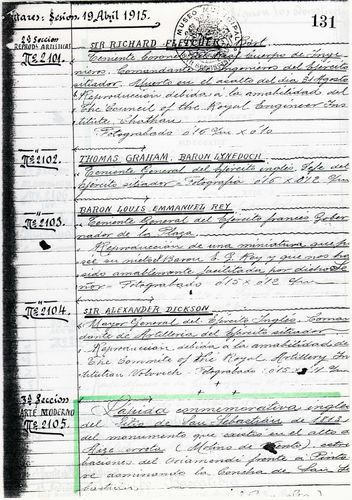 Sesion. 19 Abril 1915.
131
MUSEO MUNICIPAL
2ª Seccion
REPRODS ARTISTICAS
Nº 2101.
SIR RICHARD FLETCHER, Bart
Teniente Coronel del Cuerpo de Inge-
nieros. Comandante de Ingenieros del Ejército
sitiador. Muerto en el asalto del 31 Agosto
Reproduccion debida á la amabilidad del
The Council of the Royal Engineer Ins
titute Chatham
Fotograbado 0'16 x 0'10
Nº 2102.
THOMAS GRAHAM, BARON LYNEDOCH
Teniente General del Ejército inglés, Jefe del
Ejército sitiador = Fotografia 0'16 x 0'12
Nº 2103.
BARON LOUIS EMMANUEL REY
Teniente General del Ejército francés Gober
nador de la Plaza
Reproduccion de una miniatura que po
see su nieto el Baron E. G. Rey y que nos ha
sido amablemente facilitada por dicho Se
ñor = Fotograbado 0'15 x 0'12
Nº 2104.
SIR ALEXANDER DICKSON
Mayor General del Ejército Inglés. Coman
dante de Artilleria del Ejército sitiador
Reproduccion debida á la amabilidad de
The Commite of the Royal Artillery Ins
titution Fotograbado: 0'15 x 0'11
3ª Seccion
ARTE MODERNO
Nº 2105.
Lápida conmemorativa inglesa
del Sitio de San Sebastian de 1813
del monumento que existió en el alto de
( Molino de Viento), estri
baciones del Oriamendi frente á
ve dominando la Concha de San Se
bastian